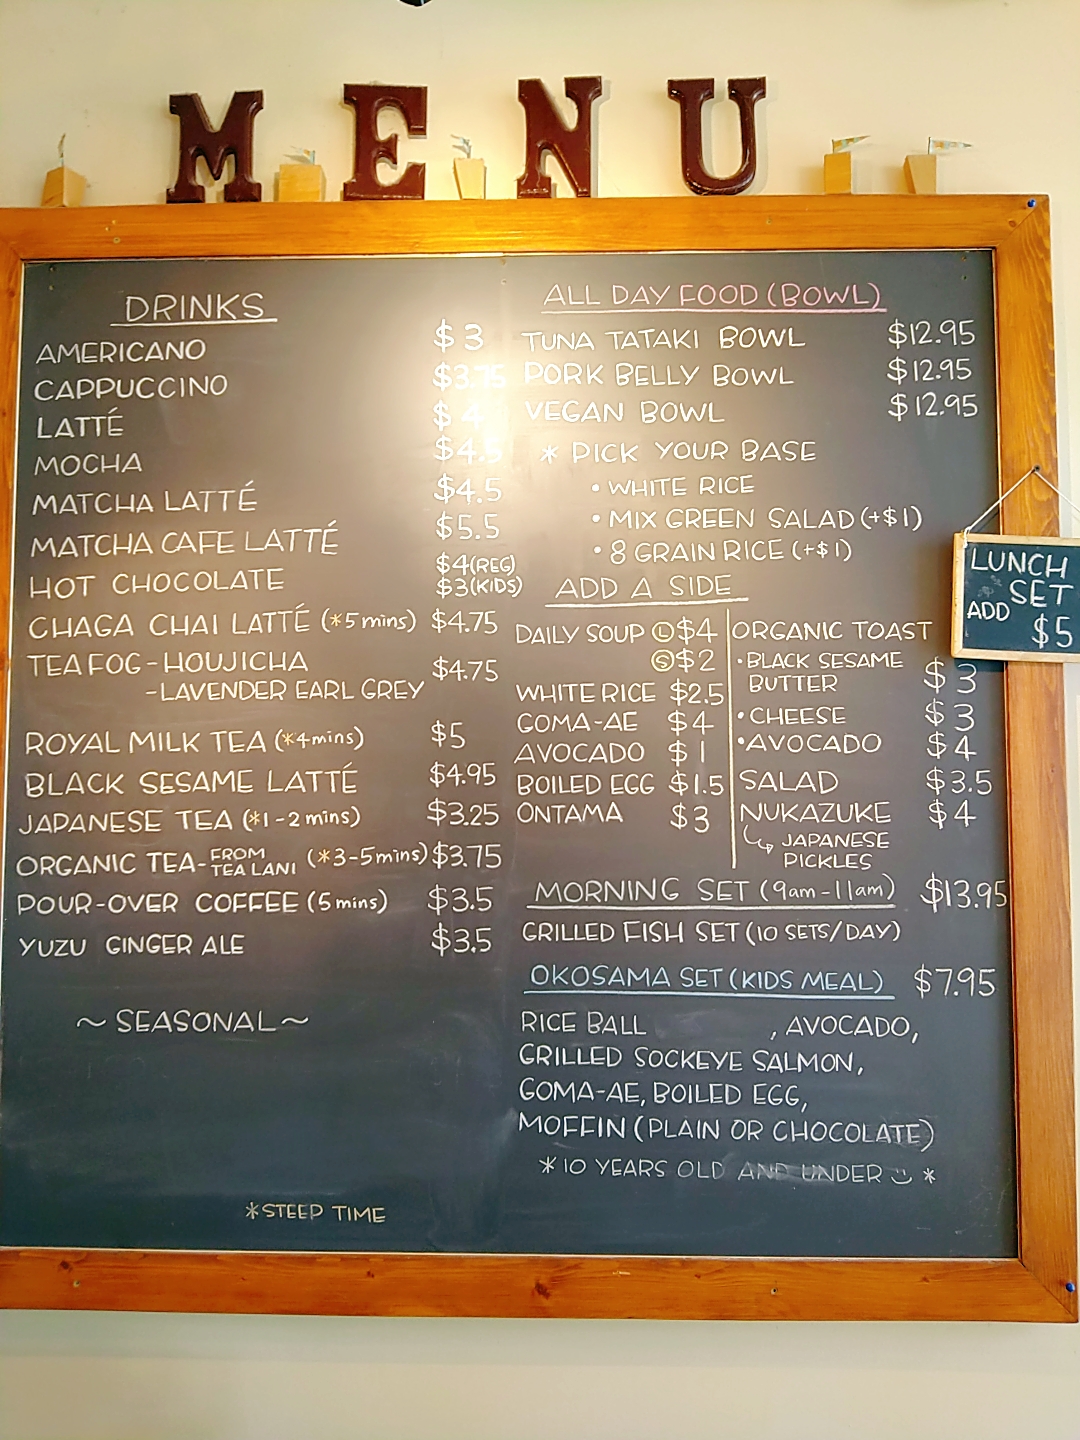 MENU
DRINKS
AMERICANO $3
CAPPUCCINO $3.75
LATTÉ $4
MOCHA $4.5
MATCHA LATTÉ $4.5
MATCHA CAFE LATTÉ $5.5
HOT CHOCOLATE $4(REG)
$3(KIDS)
CHAGA CHAI LATTÉ (*5mins) $4.75
TEA FOG-HOUJICHA $4.75
-LAVENDER EARL GREY
ROYAL MILK TEA (*4mins) $5
BLACK SESAME LATTÉ $4.95
JAPANESE TEA (*1-2mins) $3.25
ORGANIC TEA-FROM TEA LANI (*3-5mins) $3.75
POUR-OVER COFFEE (5mins) $3.5
YUZU GINGER ALE $3.5
~SEASONAL~
*STEEP TIME
ALL DAY FOOD (BOWL)
TUNA TATAKI BOWL $12.95
PORK BELLY BOWL $12.95
VEGAN BOWL $12.95
* PICK YOUR BASE
• WHITE RICE
• MIX GREEN SALAD (+$1)
• 8 GRAIN RICE (+$1)
ADD A SIDE
DAILY SOUP Ⓛ$4
Ⓢ$2
WHITE RICE $2.5
GOMA-AE $4
AVOCADO $1
BOILED EGG $1.5
ONTAMA $3
ORGANIC TOAST
•BLACK SESAME
BUTTER $3
•CHEESE $3
•AVOCADO $4
SALAD $3.5
NUKAZUKE $4
↳ JAPANESE
PICKLES
MORNING SET (9am-11am) $13.95
GRILLED FISH SET (10 SETS/DAY)
OKOSAMA SET (KIDS MEAL) $7.95
RICE BALL , AVOCADO,
GRILLED SOCKEYE SALMON,
GOMA-AE, BOILED EGG,
MOFFIN (PLAIN OR CHOCOLATE)
*10 YEARS OLD AND UNDER *
LUNCH
SET
ADD
$5